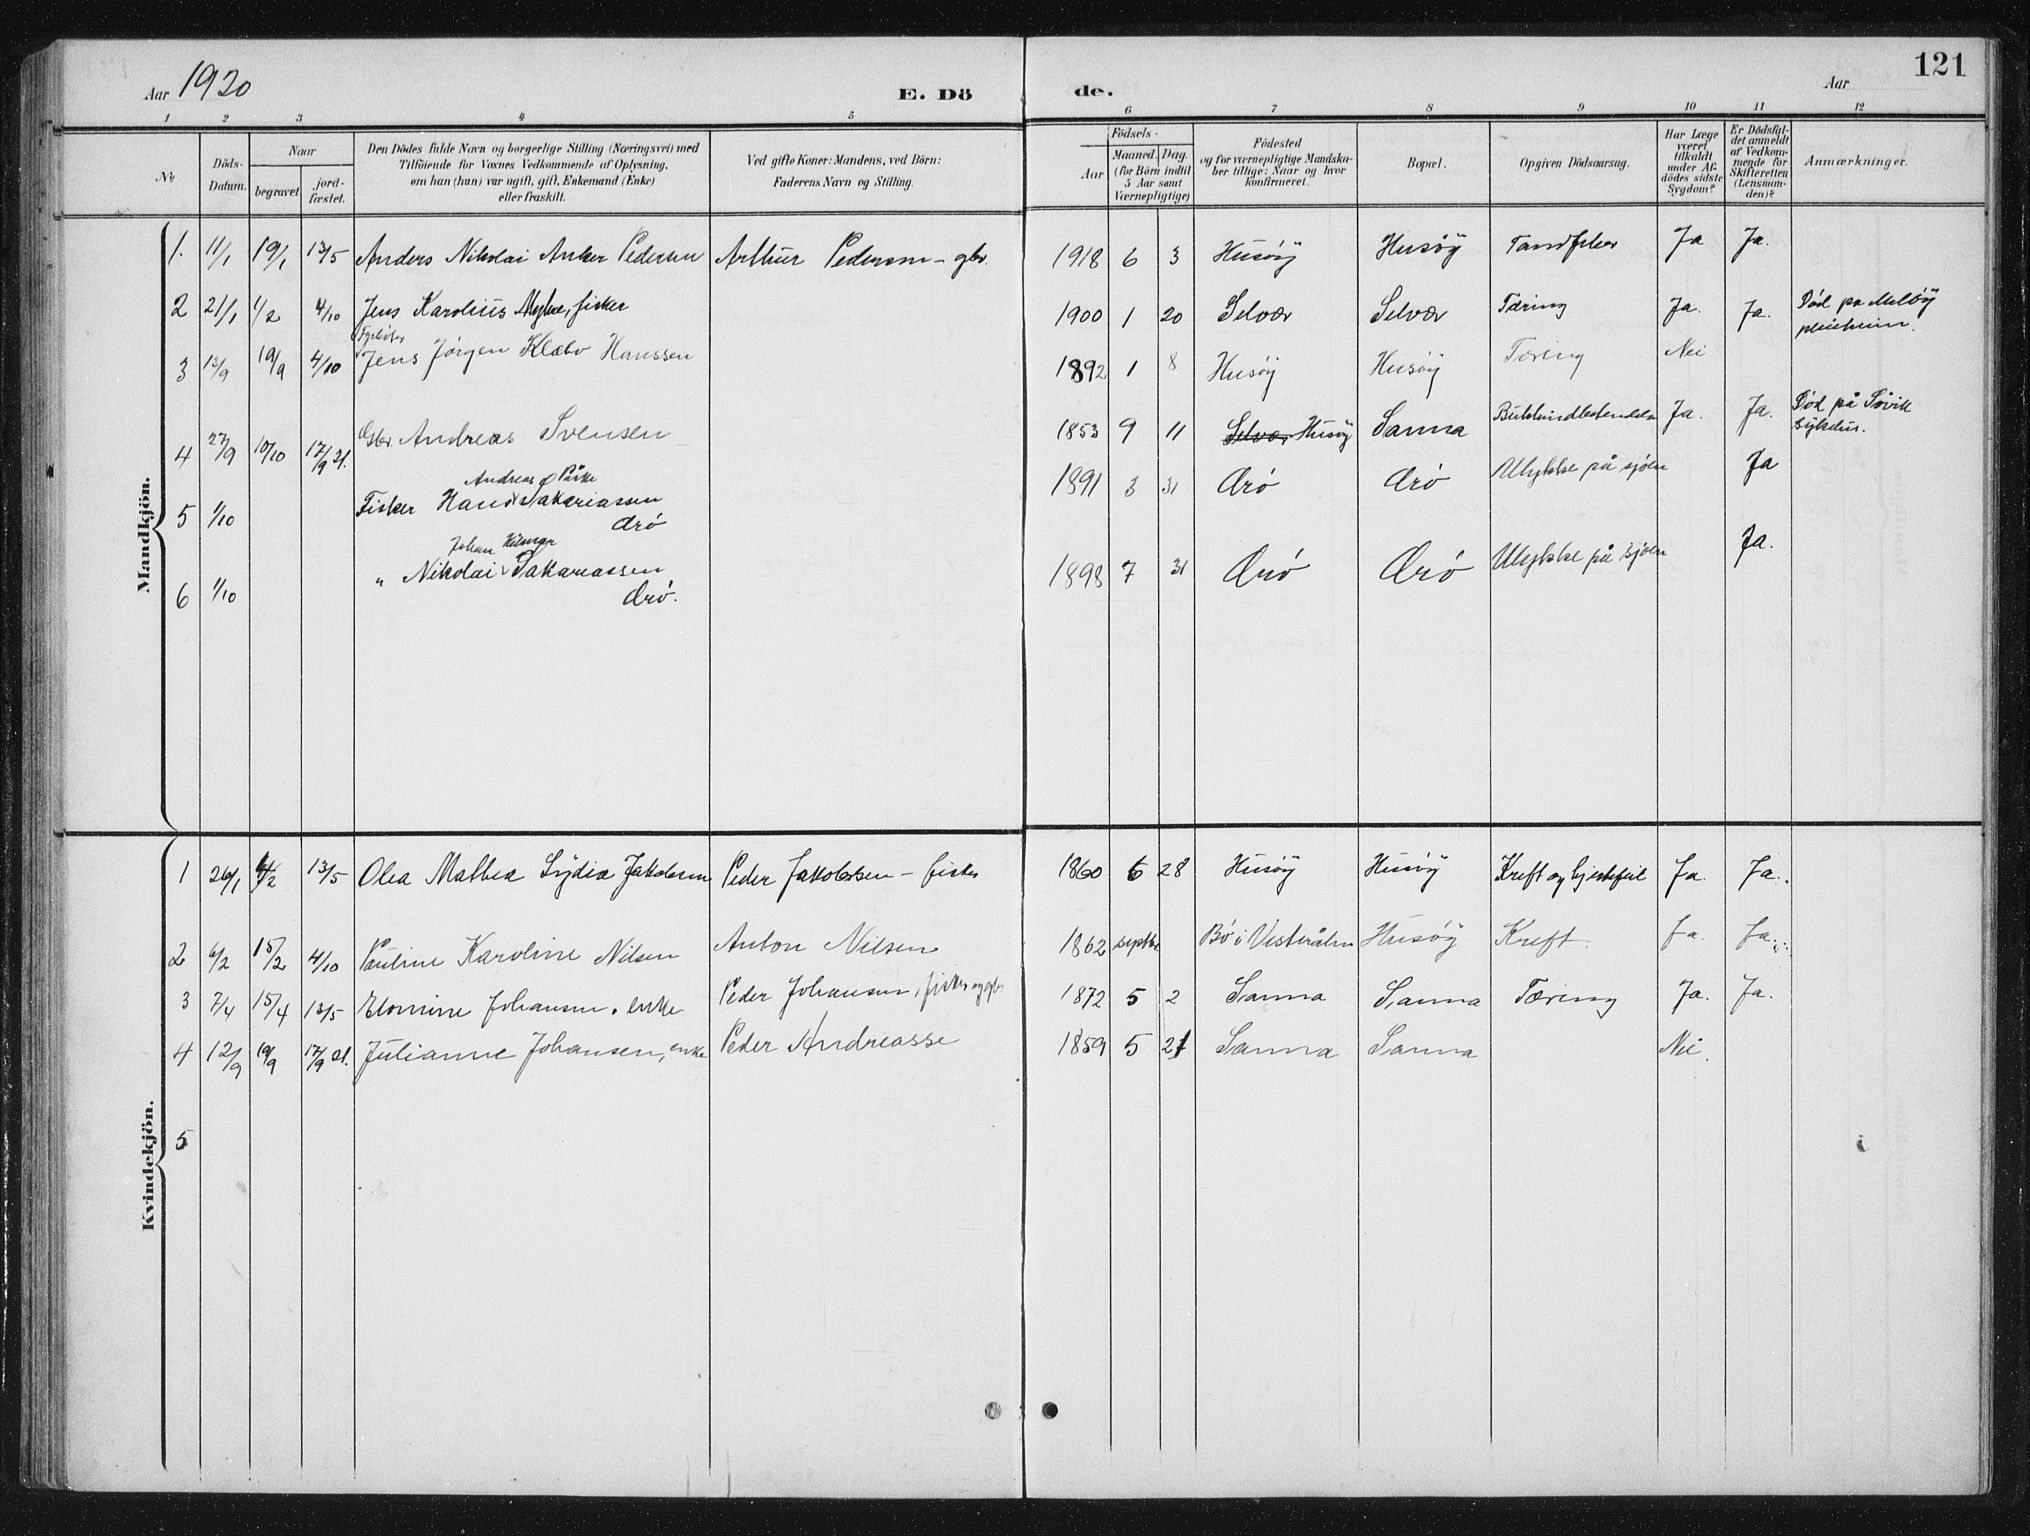 Aar 1920
E. Dö
de.
Aar
121
1 2 3 4 5 6 7 8 9 10 11 12
No
Döds-
Datum.
Naar
begravet.
jord-
fæstet.
Den Dödes fulde Navn og borgerlige Stilling (Næringsvei) med
Tilföiende for Voxnes Vedkommende af Oplysning,
om han (hun) var ugift, gift, Enkemand (Enke)
eller fraskilt.
Ved gifte Koner: Mandens, ved Börn:
Faderens Navn og Stilling.
Födsels-
Aar
Maaned. Dag.
(for Börn indtil
5 Aar samt
Værnepligtige)
Födested
og for værnepligtige Mandska-
ber tillige: Naar og hvor
konfirmeret.
Bopæl.
Opgiven Dödsaarsag.
Har Læge
været
tilkaldt
under Af-
dödes sidste
Sygdom?
Er Dödsfal-
det anmeldt
af Vedkom-
mende for
Skifteretten
(Lensman-
den)?
Anmærkninger.
Mandkjön.
1. 11/1 19/1 13/5 Anders Nikolai Anker Pedersen Arthur Pedersen - gbr. 1918 6 3 Husöy Husöy Ja Ja.
2 21/1 1/2 4/10 Jens Karolius Myhre, fisker 1900 1 20 Selvær Selvær Tæring Ja. Ja. Död på Melöy
pleieheim.
3 13/9 19/9 4/10 Jens Jörgen Klæbo Hanssen 1892 1 8 Husöy Husöy Tæring Nei
4 27/9 10/10 17/9 21. Gbr Andreas Svensen 1853 9 11 Selvær Husöy Sanna Ja. Ja. Död på Sövik
sykehus.
Andreas Påske
5 1/10 Fisker Hans Sakariassen 1891 3 31 Örö Örö Ulykke på sjöen Ja
Örö
Johan Hilmar
6 1/10 " Nikolai Sakariassen 1898 7 31 Örö Örö Ulykke på sjöen Ja.
Örö.
Kvindekjön.
1 26/1 4/2 13/5 Olea Mathea Lydia Jakobsen Peder Jakobsen - fisker 1860 6 28 Husöy Husöy Kreft og hjertefeil Ja. Ja.
2 6/2 15/2 4/10 Pauline Karoline Nilsen Anton Nilsen 1862 septbr Bö i Vesterålen Husöy Kreft. Ja. Ja.
3 7/4 15/4 13/5 Elomine Johansen. enke Peder Johansen, fisker og gbr 1872 5 2 Sanna Sanna Tæring Ja. Ja.
4 12/9 19/9 17/9 21. Julianne Johansen, enke Peder Andreasse 1859 5 21 Sanna Sanna Nei.
5